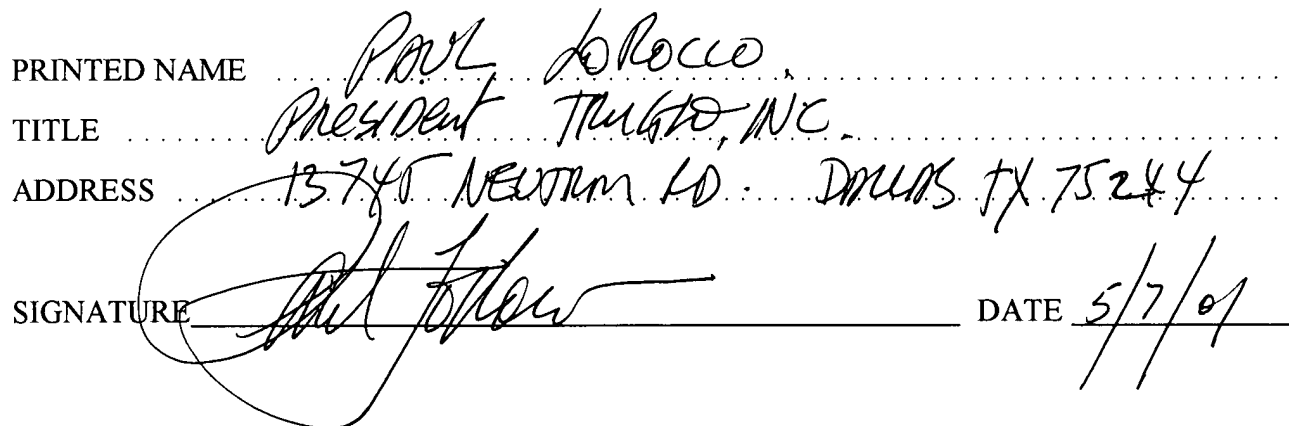 PRINTED NAME PAUL LoRocco.
TITLE President TRUGLO, INC.
ADDRESS 13745 NEUTRON RD. DALLAS TX 75244
SIGNATURE DATE 5/7/01